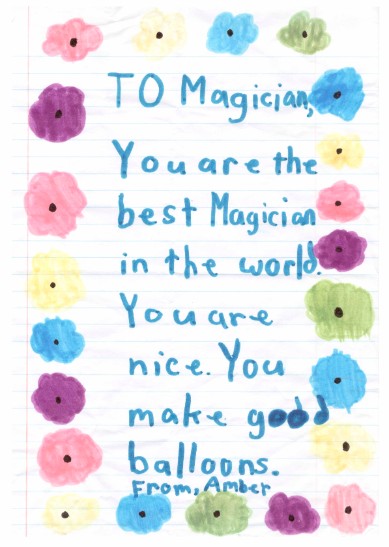 TO Magician,
You are the
best Magician
in the world.
You are
nice. You
make good
balloons.
From, Amber